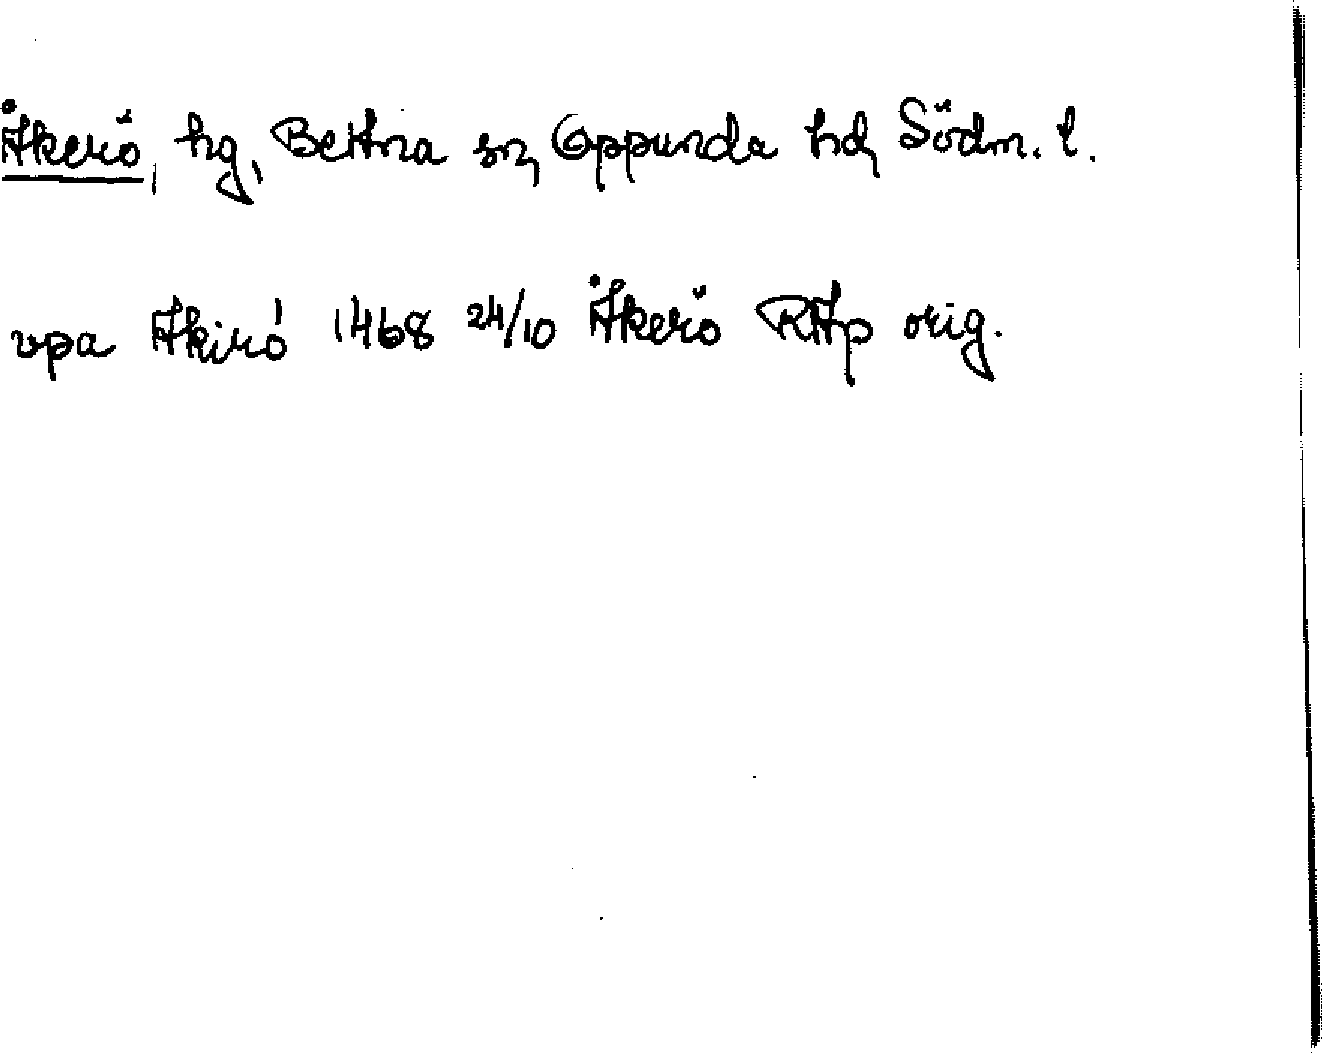 Åkerö, hg, Bettna sn, Oppunda hd, Södm. l.
vpa Akiró 1468 24/10 Åkerö RAp orig.